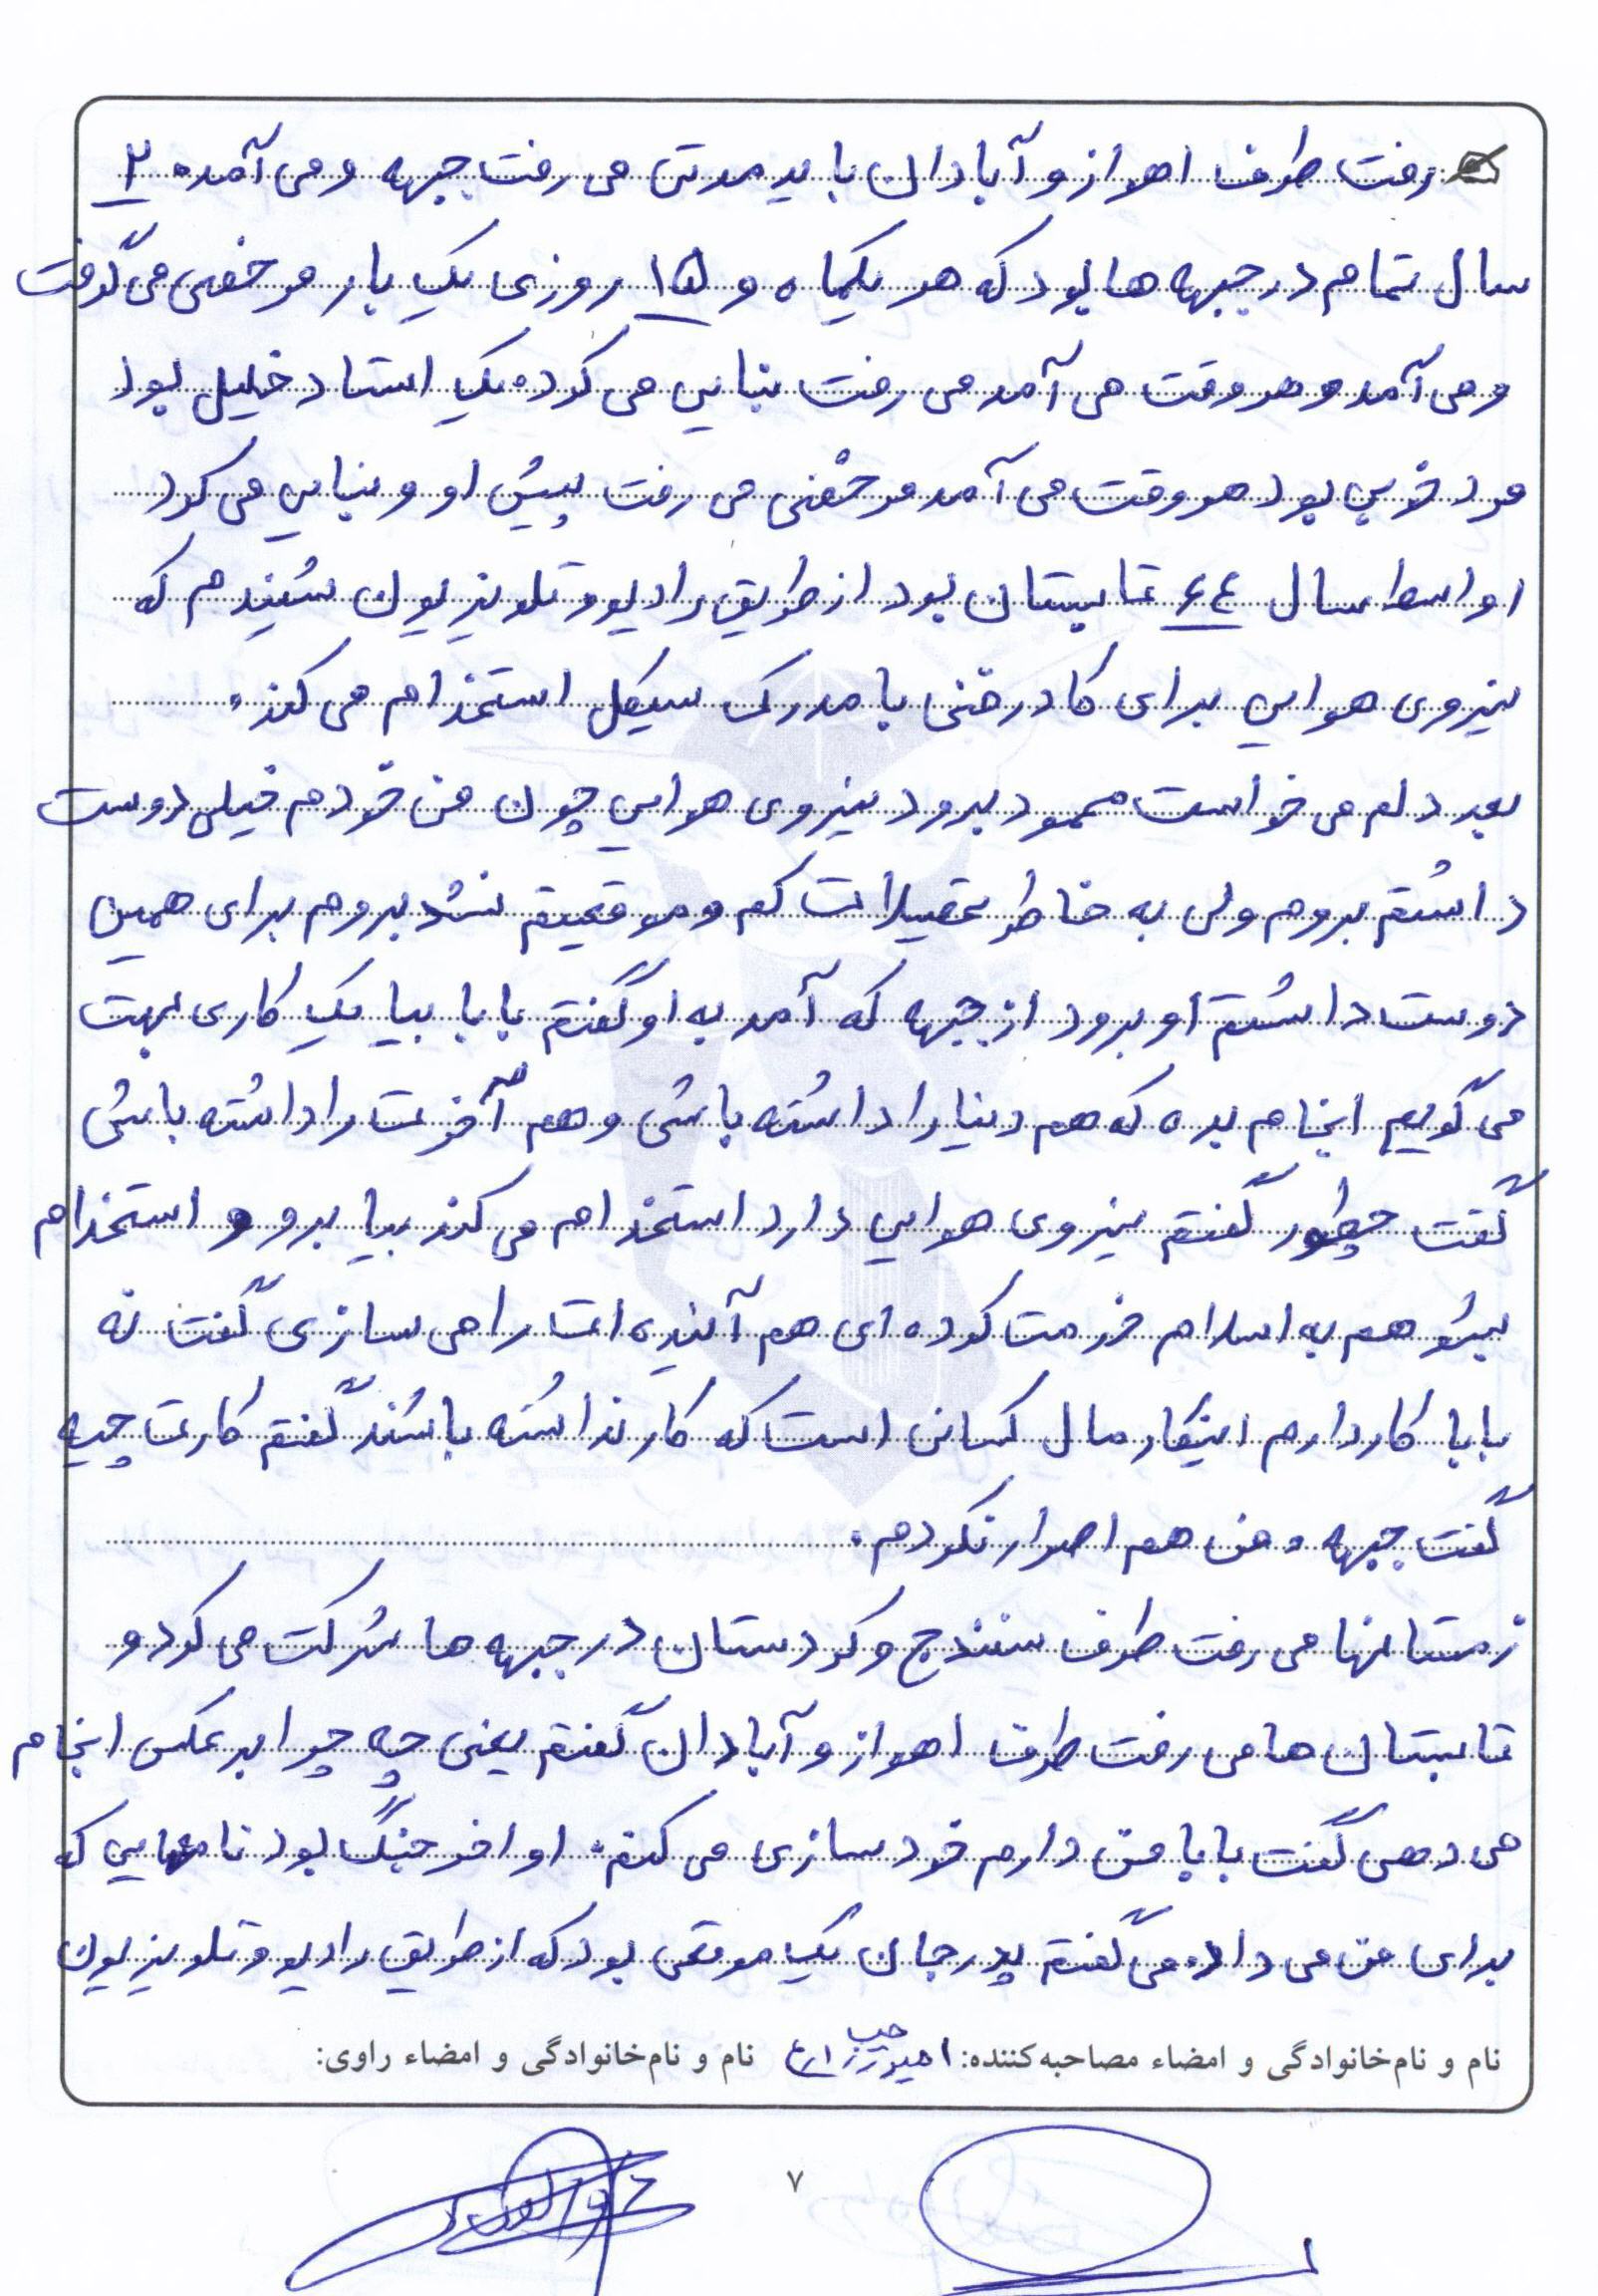 رفت طرف اهواز و آبادان باید مدتی می رفت جبهه و می آمد. ۲
سال تمام در جبهه ها بود که هر یکماه و ۱۵ روزی یک بار مرخصی می گرفت
و می آمد و هر وقت می آمد می رفت بنایی می کرد. یک استاد خلیل بود
مرد خوبی بود هر وقت می آمد مرخصی می رفت پیش او و بنایی می کرد
اواسط سال ۶۴ تابستان بود از طریق رادیو و تلویزیون شنیدم که
نیروی هوایی برای کادر فنی با مدرک سیکل استخدام می کند.
بعد دلم می خواست محمود برود نیروی هوایی چون من خودم خیلی دوست
داشتم بروم ولی به خاطر تحصیلات کم و موقعیتم نشد بروم برای همین
دوست داشتم او برود از جبهه که آمد به او گفتم بابا بیا یک کاری بهت
می گویم انجام بده که هم دنیا را داشته باشی و هم آخرت را داشته باشی
گفت چطور گفتم نیروی هوایی دارد استخدام می کند بیا برو و استخدام
بشو هم به اسلام خدمت کرده ای هم آینده ات را می سازی گفت نه
بابا کار دارم اینکار مال کسانی است که کار نداشته باشند گفتم کارت چیه
گفت جبهه و من هم اصرار نکردم.
زمستانها می رفت طرف سنندج و کردستان در جبهه ها شرکت می کرد و
تابستان ها می رفت طرف اهواز و آبادان گفتم یعنی چه چرا برعکس انجام
می دهی گفت بابا من دارم خودسازی می کنم. اواخر جنگ بود نامهایی که
برای من می داد. می گفتم پدر جان یک موقعی بود که از طریق رادیو و تلویزیون
نام و نام‌خانوادگی و امضاء مصاحبه‌کننده: نام و نام‌خانوادگی و امضاء راوی:
۷